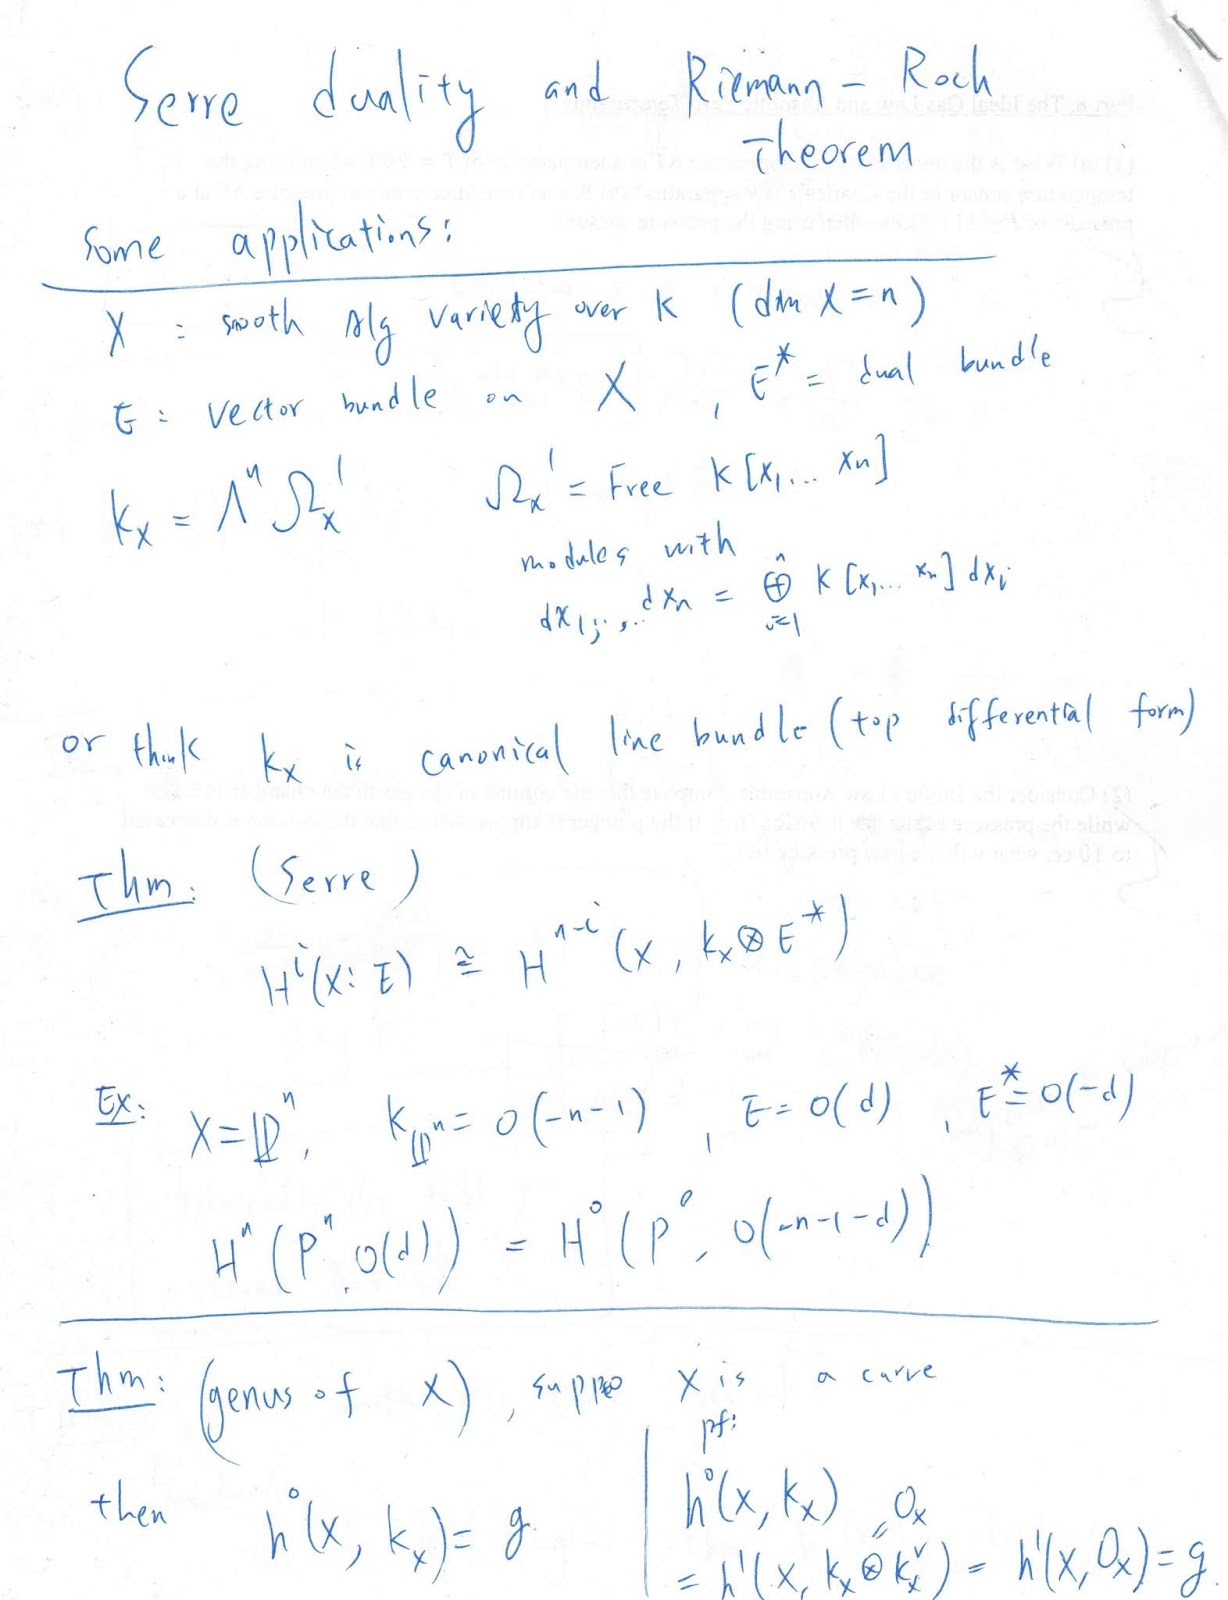 Serre duality and Riemann - Roch
Theorem
Some applications:
X : smooth Alg variety over k (dim X = n)
E : vector bundle on X , E* = dual bundle
k_X = Λ^n Ω_X^1
Ω_X^1 = Free k[x_1, ... x_n]
modules with
dx_1, ... dx_n = ⊕_{i=1}^n k[x_1, ... x_n] dx_i
or think k_X is canonical line bundle (top differential form)
Thm: (Serre)
H^i(X: E) ≅ H^{n-i}(X, k_X ⊗ E*)
Ex: X = ℙ^n, K_{ℙ^n} = O(-n-1) , E = O(d) , E* = O(-d)
H^n(P^n, O(d)) = H^0(P^0, O(-n-1-d))
Thm: (genus of X), X is a curve
then h^0(X, k_X) = g.
pf:
h^0(X, k_X) O_X
= h^1(X, k_X ⊗ k_X^∨) = h^1(X, O_X) = g.